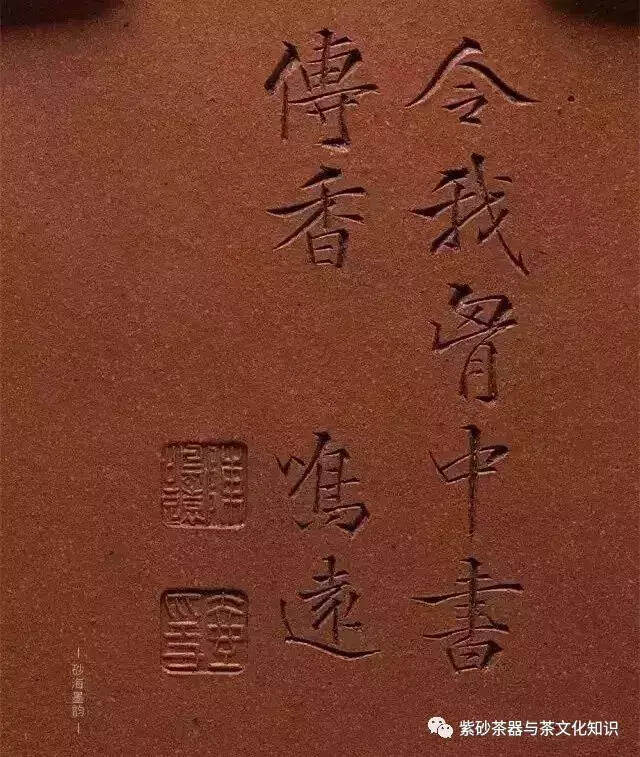 令我胷中書
傳香 鳴遠
砂海墨韵
紫砂茶器与茶文化知识